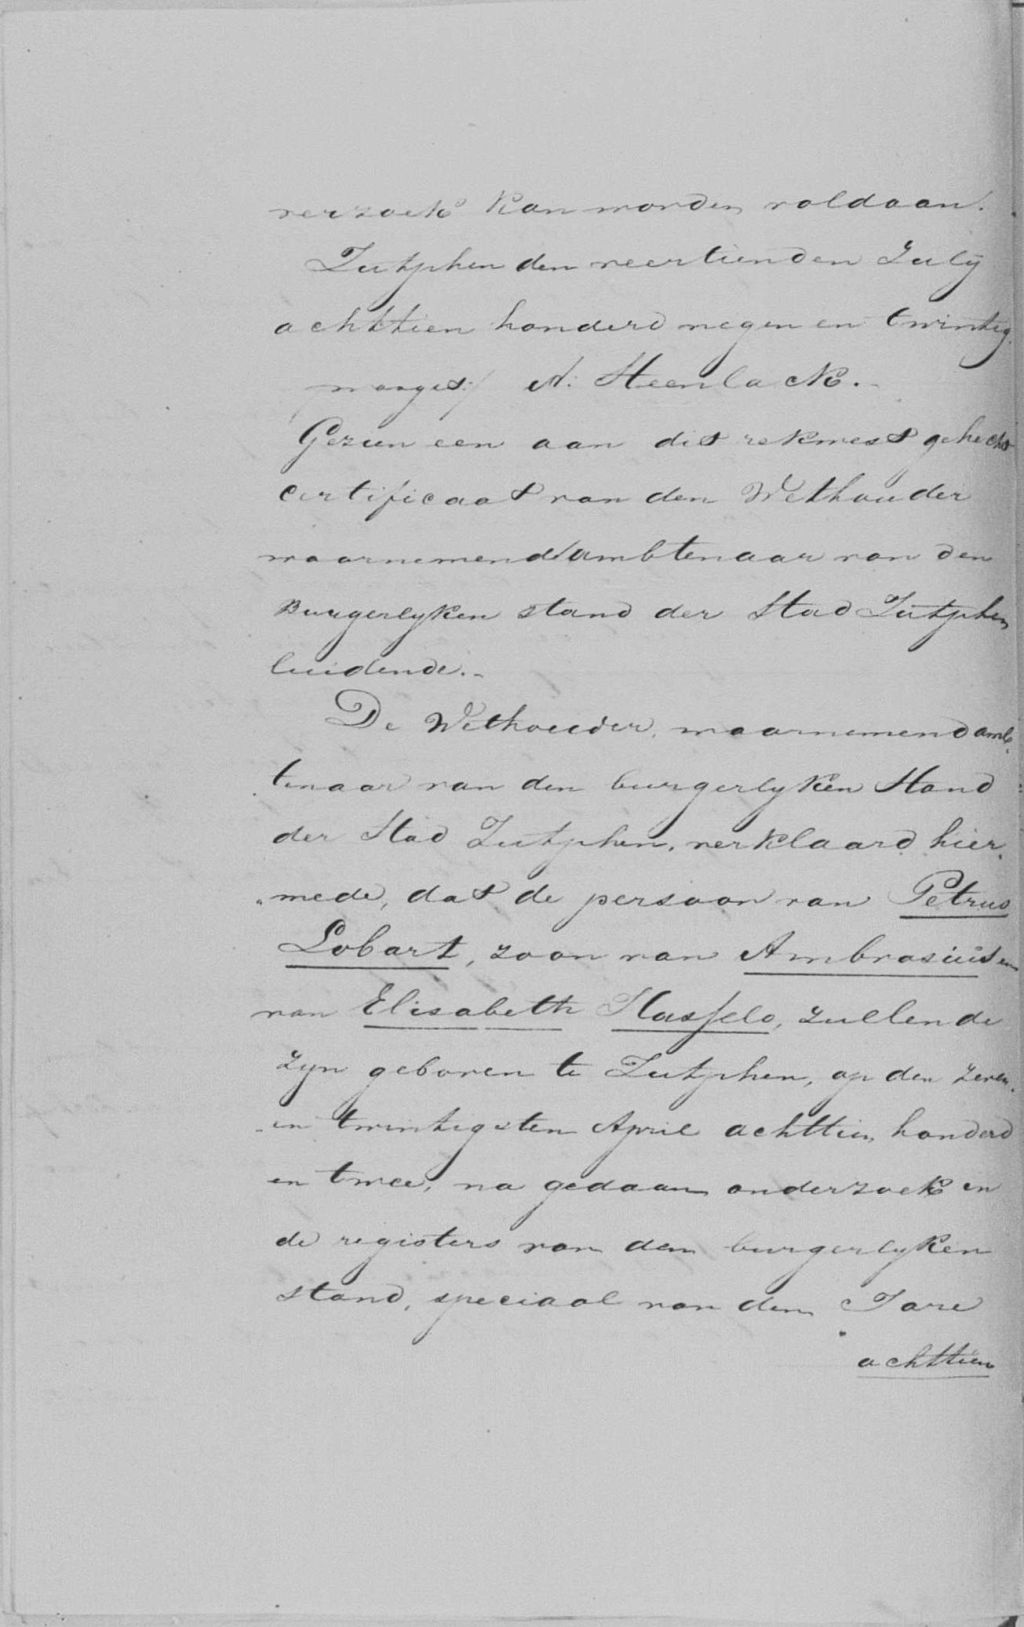 verzoek kan worden voldaan.
Zutphen den veertienden July
achttien honderd negen en twintig
A: Steenlack.
Gezien een aan dit rekwest gehecht
certificaat van den Wethouder
waarnemend ambtenaar van den
Burgerlyken stand der Stad Zutphen
luidende.-
De Wethouder, waarnemend amb
tenaar van den burgerlyken Stand
der Stad Zutphen, verklaard hier
mede, dat de persoon van Petrus
Lobart, zoon van Ambrosius en
van Elisabeth Hasselo, zullende
zyn geboren te Zutphen, op den zeven
en twintigsten April achttien honderd
en twee, na gedaan onderzoek in
de registers van den burgerlyken
stand, speciaal van den Jare
achttien